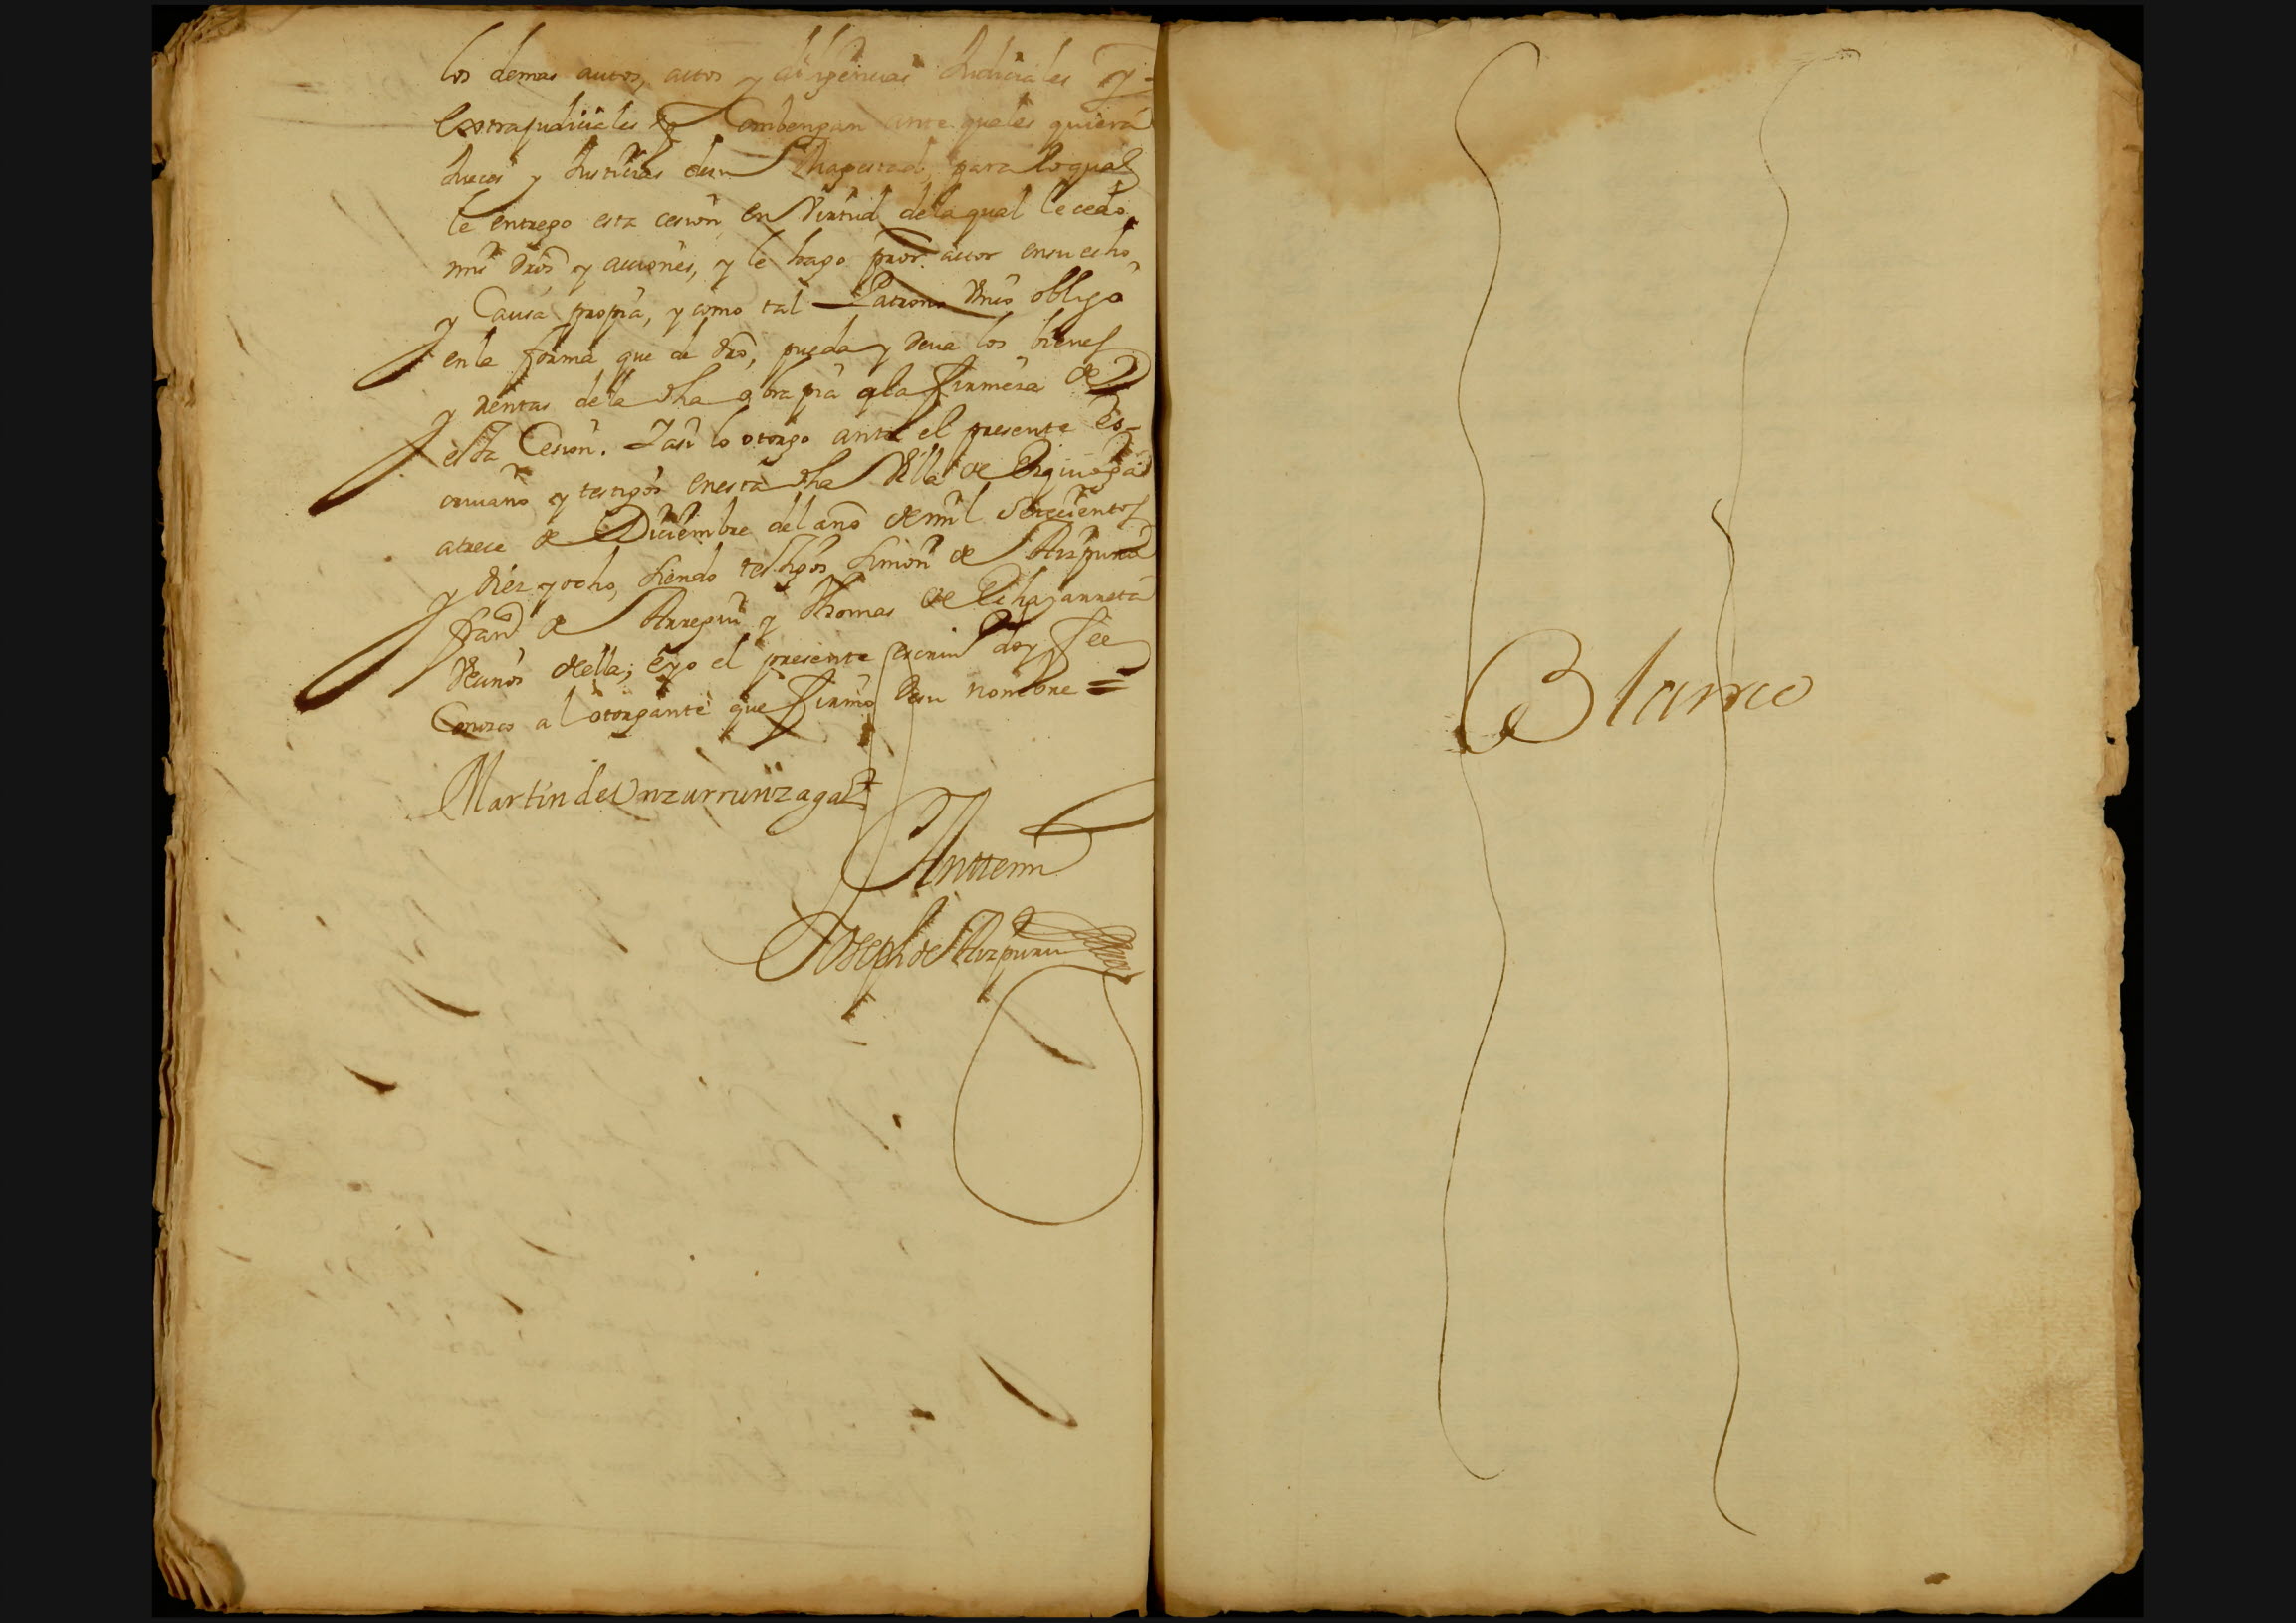 los demas autos, actos y diligencias Judiciales y
extrajudiciales q Combengan ante quales quiera
Jueces y Justicias desu Magestad, para loqual
le entrego esta cesion en Virtud delaqual le cedo
mis dros y acciones, y le hago pror actor ensu echo
y Causa propia, y como tal Patrono Unico obligo
enla forma que de dro, pueda y deua los bienes
y Rentas dela dha obra pia ala firmeza de
esta Cesion. Y asi lo otorgo ante el presente Es-
criuano y testigos enesta dha Villa de Elgueta
atrece de Diciembre del año de mil Setecientos
y diez y ocho, siendo testigos Simon de Aizpuru
Franco de Arregui y Thomas de Echajarreta
Vecinos della; e yo el presente escriuo doy fee
Conozco al otorgante que firmo de su nombre =
Martin de Unzurrunzaga
Anttemi
Joseph de Aizpuru
Blanco